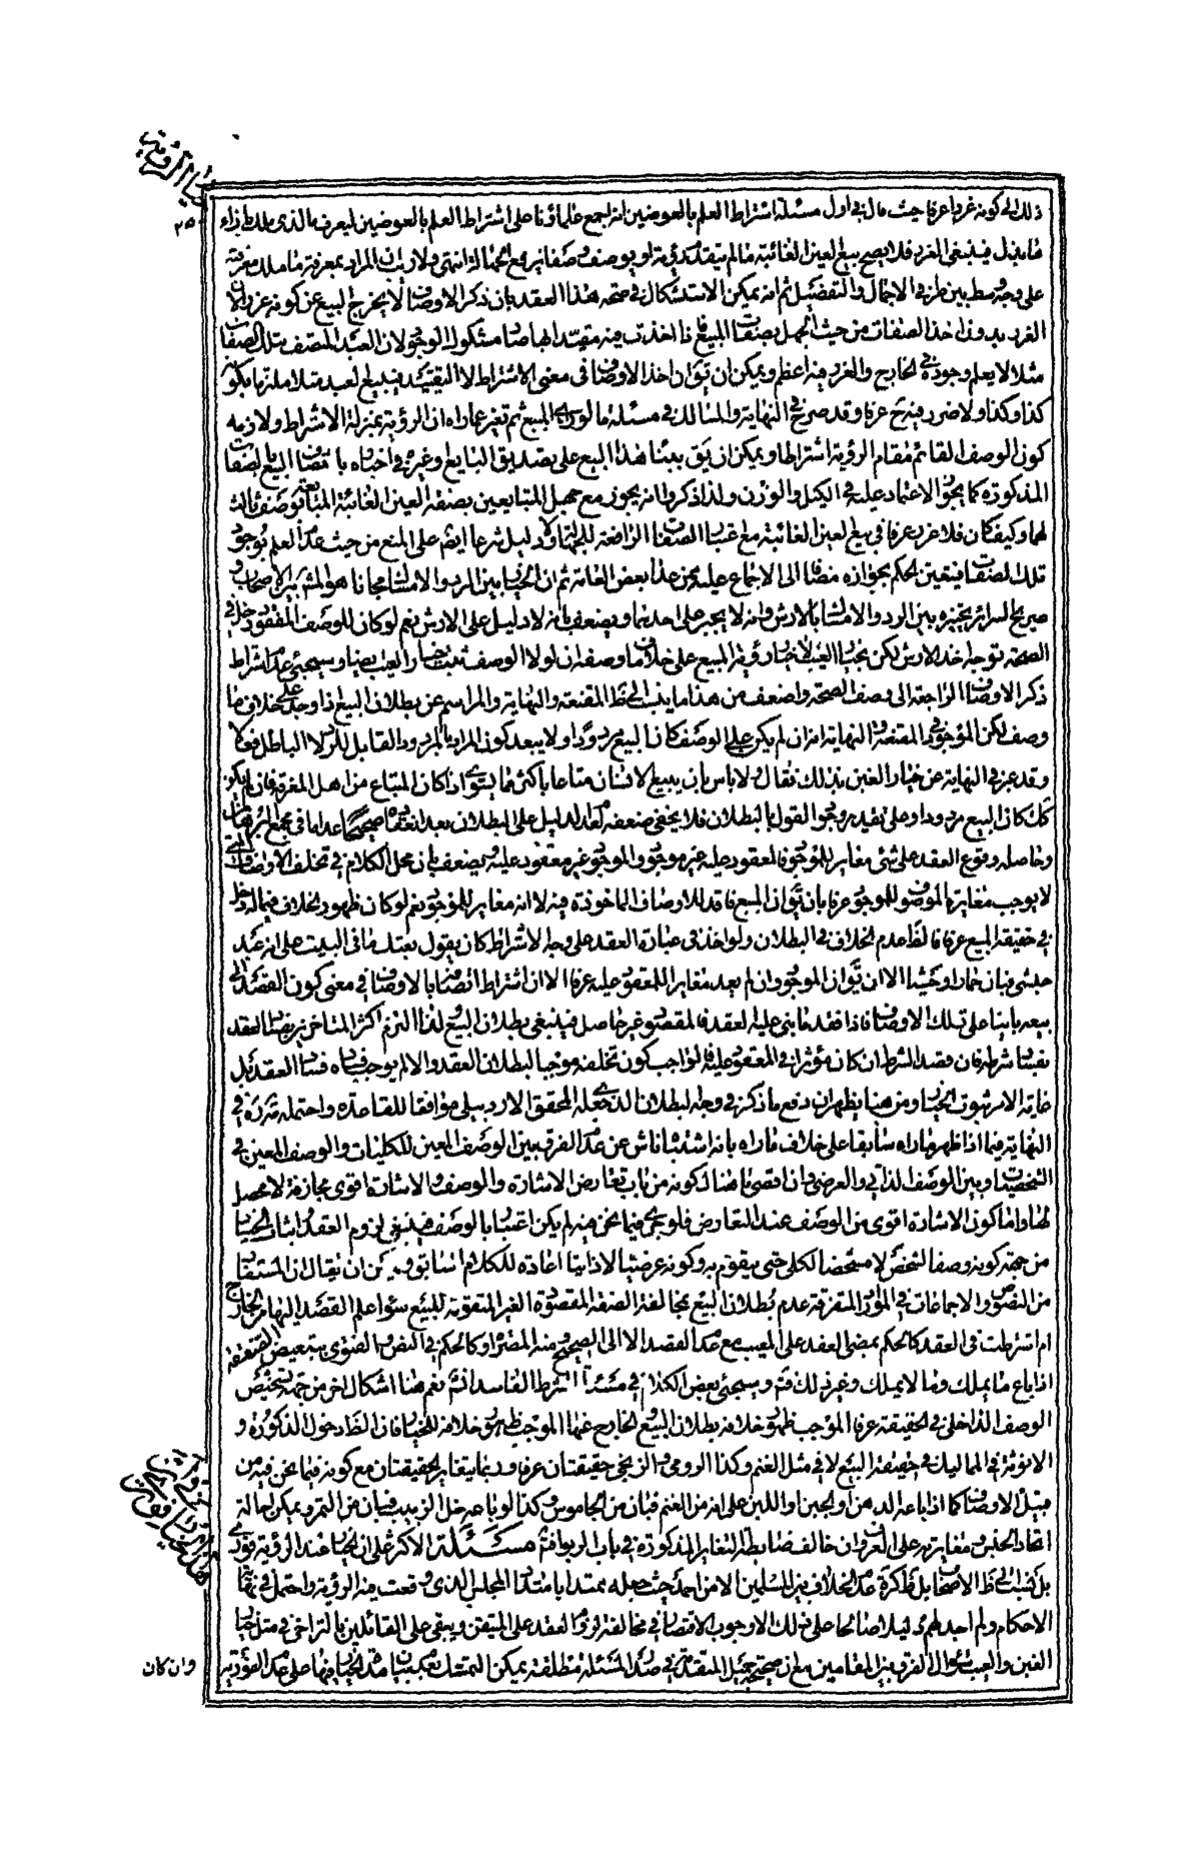 خيار الرؤية
٢٥٠
ذلك الى كونه غررا عرفا حيث قال في اول مسئلة اشتراط العلم بالعوضين انه اجمع علمائنا على اشتراط العلم بالعوضين ليعرف ما الذي ملك بازاء
ما بذل فينتفي الغرر فلا يصح بيع العين الغائبة ما لم يتقدم رؤية او يوصف وصفا يرفع الجهالة انتهى ولا ريب ان المراد بمعرفة ما ملك معرفته
على وجه وسط بين طرفي الاجمال والتفصيل ثم انه يمكن الاستشكال في صحة هذا العقد بان ذكر الاوصاف لا يخرج البيع عن كونه غررا لان
الغرر بدون اخذ الصفات من حيث الجهل بصفات المبيع فاذا اخذت فيه مقيدا بها صار مشكوك الوجود لان العبد المتصف بتلك الصفات
مثلا لا يعلم وجوده في الخارج والغرر فيه اعظم ويمكن ان يق ان اخذ الاوصاف في معنى الاشتراط لا التقييد فيبيع العبد مثلا ملتزما بكونه
كذا وكذا ولا ضرر فيه ح عرفا وقد صرح في النهاية والمسالك في مسئلة ما لو راى المبيع ثم تغير عما راه ان الرؤية بمنزلة الاشتراط ولازمه
كون الوصف القائم مقام الرؤية اشتراطا ويمكن ان يق ببناء هذا البيع على تصديق البايع وغيره في اخباره باتصاف المبيع بالصفات
المذكورة كما يجوز الاعتماد عليه في الكيل والوزن ولذا ذكروا انه يجوز مع جهل المتبايعين بصفة العين الغائبة المبايعة بوصف ثالث
لهما وكيف كان فلا غرر عرفا في بيع العين الغائبة مع اعتبار الصفات الرافعة للجهالة ولا دليل شرعا ايضم على المنع من حيث عدم العلم بوجود
تلك الصفات فيتعين الحكم بجوازه مضافا الى الاجماع عليه ممن عدا بعض العامة ثم ان الخيار بين الرد والامساك مجانا هو المشهور بين الاصحاب و
صريح السرائر تخييره بين الرد والامساك بالارش وانه لا يجبر على احدهما ويضعف بانه لا دليل على الارش نعم لو كان للوصف المفقود دخل في
الصحة توجه اخذ الارش لكن بخيار العيب لا خيار رؤية المبيع على خلاف ما وصفه اذ لولا الوصف ثبت خيار العيب ايضا وسيجئ عدم اشتراط
ذكر الاوصاف الراجعة الى وصف الصحة واضعف من هذا ما ينسب الى ظ المقنعة والنهاية والمراسم من بطلان البيع اذا وجد على خلاف ما
وصف لكن الموجود في المقنعة والنهاية انه ان لم يكن على الوصف كان البيع مردودا ولا يبعد كون المراد بالمردود القابل للرد لا الباطل فعلا
وقد عبر في النهاية عن خيار الغبن بذلك فقال ولا باس بان يبيع الانسان متاعا باكثر مما يسوى اذا كان المبتاع من اهل المعرفة فان لم يكن
كك كان البيع مردودا وعلى تقدير وجود القول بالبطلان فلا يخفى ضعفه لعدم الدليل على البطلان بعد انعقاده صحيحا عدا ما في مجمع البرهان
وحاصله وقوع العقد على شئ مغاير للموجود فالمعقود عليه غير موجود والموجود غير معقود عليه ويضعف بان محل الكلام في تخلف الاوصاف التي
لا يوجب مغايرة الموصوف للموجود عرفا بان يق ان المبيع فاقد للاوصاف الماخوذة فيه لا انه مغاير للموجود نعم لو كان ظهور الخلاف فيما له دخل
في حقيقة المبيع عرفا فالظ عدم الخلاف في البطلان ولو اخذ في عبارة العقد على وجه الاشتراط كان يقول بعتك ما في البيت على انه عبد
حبشي فبان حمارا وحشيا الا ان يق ان الموجود وان لم يعد مغايرا للمعقود عليه عرفا الا ان اشتراط اتصافه بالاوصاف في معنى كون القصد الى
بيعه بانيا على تلك الاوصاف فاذا فقد ما بنى عليه العقد فالمقصود غير حاصل فينبغي بطلان البيع ولذا التزم اكثر المتاخرين بفساد العقد
بفساد شرطه فان قصد الشرط ان كان مؤثرا في المعقود عليه فالواجب كون تخلفه موجبا لبطلان العقد والا لم يوجب فساده فساد العقد بل
غايته الامر ثبوت الخيار ومن هنا يظهر ان دفع ما ذكر في وجه البطلان الذي جعله المحقق الاردبيلي موافقا للقاعدة واحتمله ره في
النهاية فيما اذا ظهر ما راه سابقا على خلاف ما راه بانه اشتباه ناش عن عدم الفرق بين الوصف المعين للكليات والوصف المعين في
الشخصيات وبين الوصف الذاتي والعرضي وان اقصى ما هناك كونه من باب تعارض الاشارة والوصف والاشارة اقوى مجازفة لا محصل
لها واما كون الاشارة اقوى من الوصف عند التعارض فلو جرى فيما نحن فيه لم يكن اعتبار بالوصف فينبغي لزوم العقد واثبات الخيار
من جهة كونه وصفا لشخص لا مشخصا لكلي حتى يقوم به وكونه عرضيا لا ذاتيا اعادة للكلام السابق ويمكن ان يقال ان المستفاد
من النصوص والاجماعات في الموارد المتفرقة عدم بطلان البيع بمخالفة الصفة المقصودة الغير المقومة للمبيع سواء علم القصد اليها من الخارج
ام اشترطت في العقد كالحكم بمضي العقد على المعيب مع عدم القصد الا الى الصحيح ومنه المصراة وكالحكم في النص والفتوى بتبعيض الصفقة
اذا باع ما يملك وما لا يملك وغير ذلك فتم وسيجئ بعض الكلام في مسئلة الشرط الفاسد انشم نعم هنا اشكال اخر من جهة تشخيص
الوصف الداخل في الحقيقة عرفا الموجب ظهور خلافه بطلان البيع والخارج عنها الموجب ظهور خلافه للخيار فان الظ دخول الذكورة و
الانوثة في المماليك في حقيقة المبيع لا في مثل الغنم وكذا الرومي والزنجي حقيقتان عرفا وربما يتغاير الحقيقتان مع كونه فيما نحن فيه من
قبيل الاوصاف كما اذا باعه الدهن او الجبن او اللبن على انه من الغنم فبان من الجاموس وكذا لو باعه خل الزبيب فبان من التمر ويمكن احالة
اتحاد الجنس ومغايرته على العرف وان خالف ضابطة التغاير المذكورة في باب الربوا فتم مسئلة الاكثر على ان الخيار عند الرؤية فوري
بل نسب الى ظ الاصحاب بل ظ كرة عدم الخلاف بين المسلمين الا من احمد حيث جعله ممتدا بامتداد المجلس الذي وقعت فيه الرؤية واحتمل في نهاية
الاحكام ولم اجد لهم دليلا صالحا على ذلك الا وجوب الاقتصار في مخالفة لزوم العقد على المتيقن ويبقى على القائلين بالتراخي في مثل خيار
الغبن والعيب سؤال الفرق بين المقامين مع ان صحيحة جميل المتقدمة في صدر المسئلة مطلقة يمكن التمسك بعدم بيان مدة الخيار فيها على عدم الفورية
وان كان